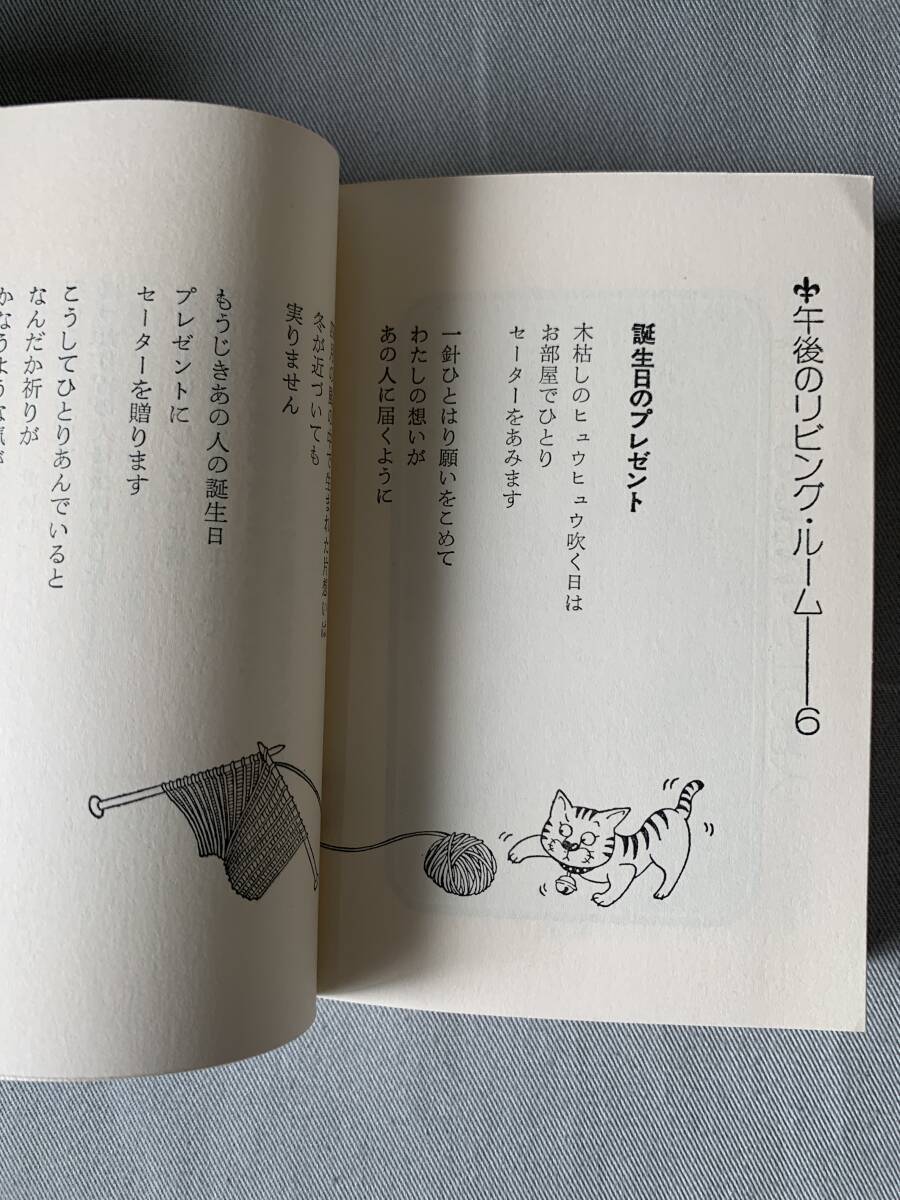 午後のリビング・ルーム――6
誕生日のプレゼント
木枯しのヒュウヒュウ吹く日は
お部屋でひとり
セーターをあみます
一針ひとはり願いをこめて
わたしの想いが
あの人に届くように
の中で生まれた片想いは
冬が近づいても
実りません
もうじきあの人の誕生日
プレゼントに
セーターを贈ります
こうしてひとりあんでいると
なんだか祈りが
かなうような気が